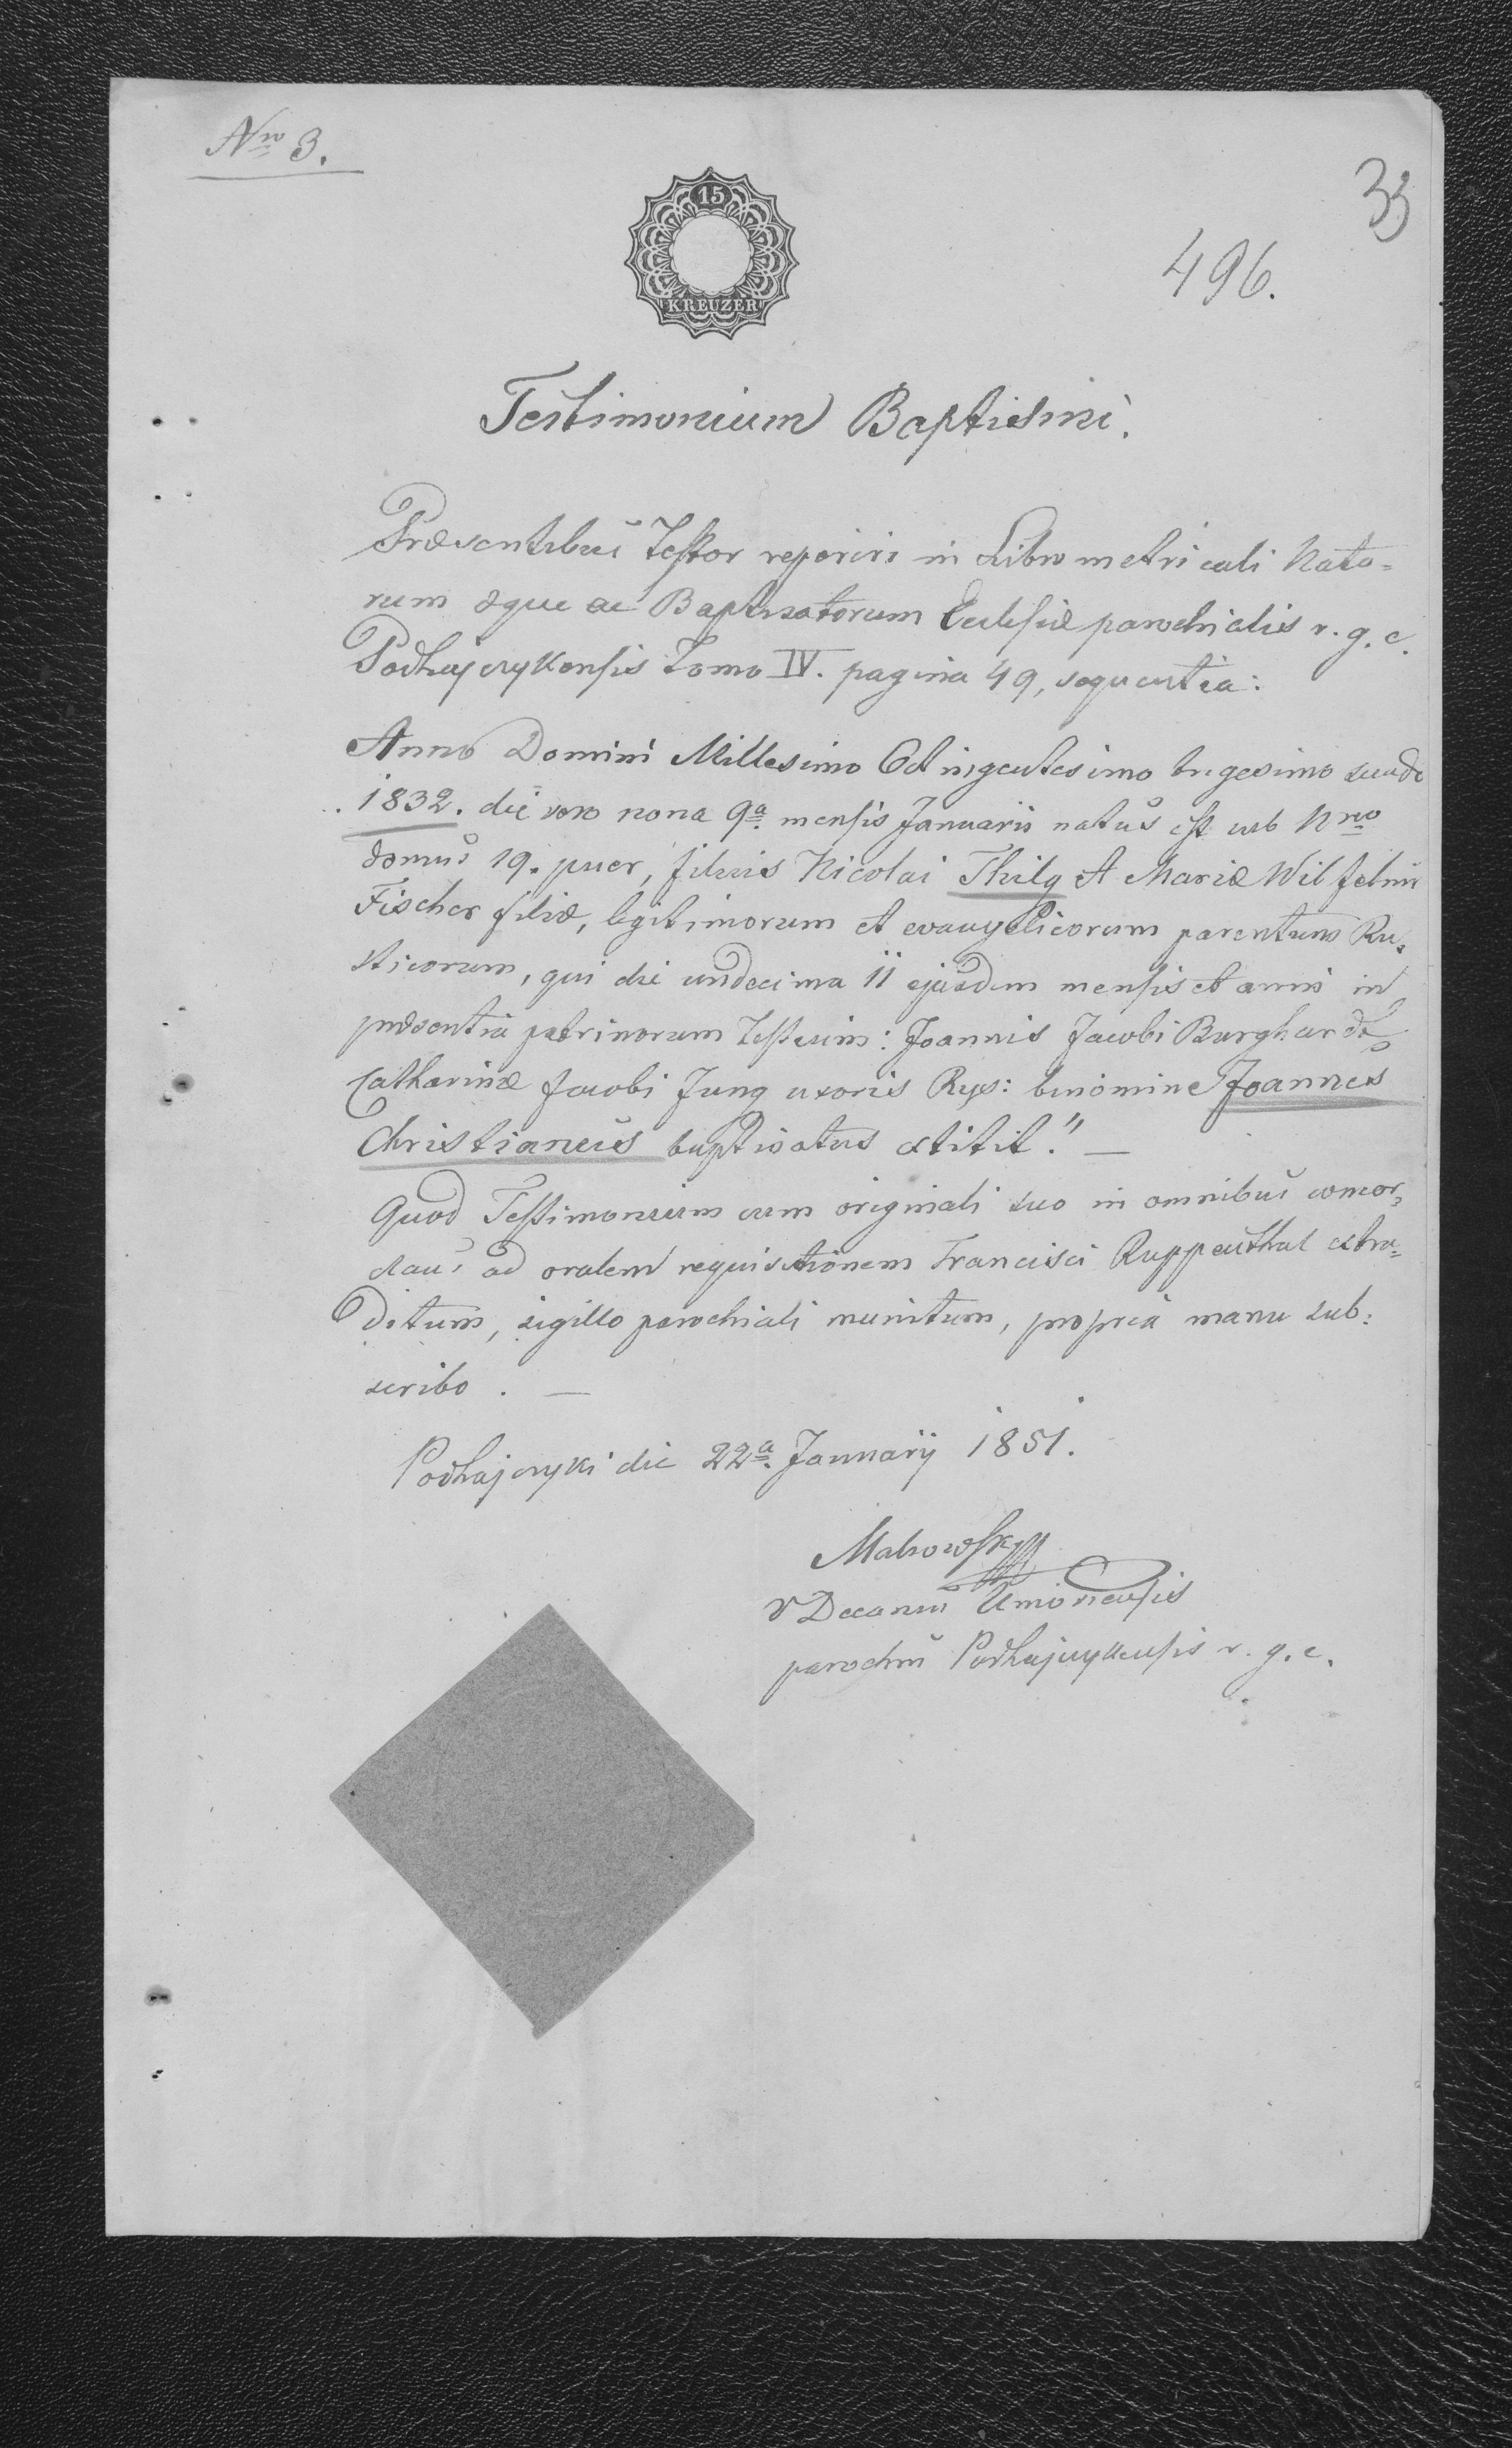 Nro 3.
33
15
KREUZER
496.
Testimonium Baptismi.
Præsentibus Testor reperiri in Libro metricali Nato=
rum æque ac Baptisatorum Ecclesiæ parochialis r. g. c.
Podhajczykensis Tomo IV. pagina 49, sequentia:
Anno Domini Millesimo Octingentesimo trigesimo secundo
1832. die vero nona 9a mensis Januarii natus est sub Nro
domus 19. puer, filius Nicolai Thilg et Mariæ Wilhelmi
Fischer filiæ, legitimorum et evangelicorum parentum Ru=
sticorum, qui die undecima 11 ejusdem mensis et anni in
præsentia patrinorum Testium: Joannis Jacobi Burghardt
Catharinæ Jacobi Jung uxoris binomine Joannes
Christianus baptisatus extitit." —
Quod Testimonium cum originali suo in omnibus concor=
dans ad oralem requisitionem Francisci Ruppenthal extra=
ditum, sigillo parochiali munitum, propria manu sub=
scribo. —
Podhajczyki die 22a Januarij 1851.
VDecanus
parochus Podhajczykensis r. g. c.